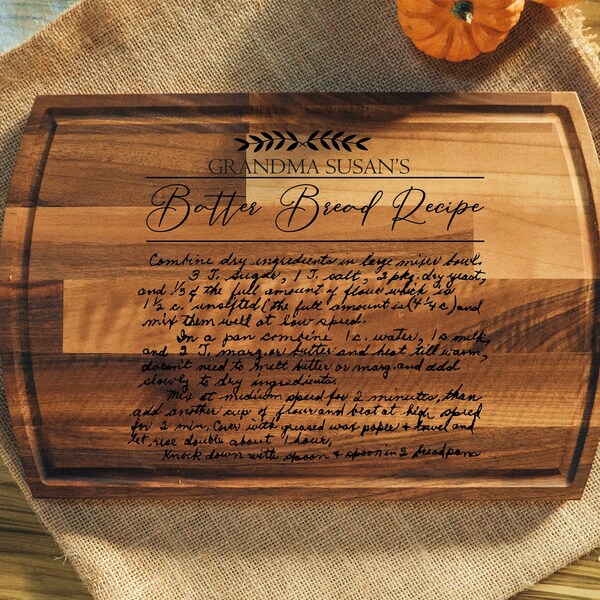 GRANDMA SUSAN'S
Batter Bread Recipe
Combine dry ingredients in large mixer bowl.
3 T. Sugar, 1 T. salt, 2 pkg. dry yeast,
and 1/3 of the full amount of flour which is
1 1/2 c. unsifted (the full amount is (4 1/4 c) and
mix them well at low speed.
In a pan combine 1 c. water, 1 c milk,
and 2 T. marg. or butter and heat till warm,
doesn't need to melt butter or marg. and add
slowly to dry ingredients.
Mix at medium speed for 2 minutes, than
add another cup of flour and beat at high speed
for 2 min. Cover with greased wax paper + towel and
let rise double about 1 hour,
Knock down with spoon + spoon in 2 bread pans